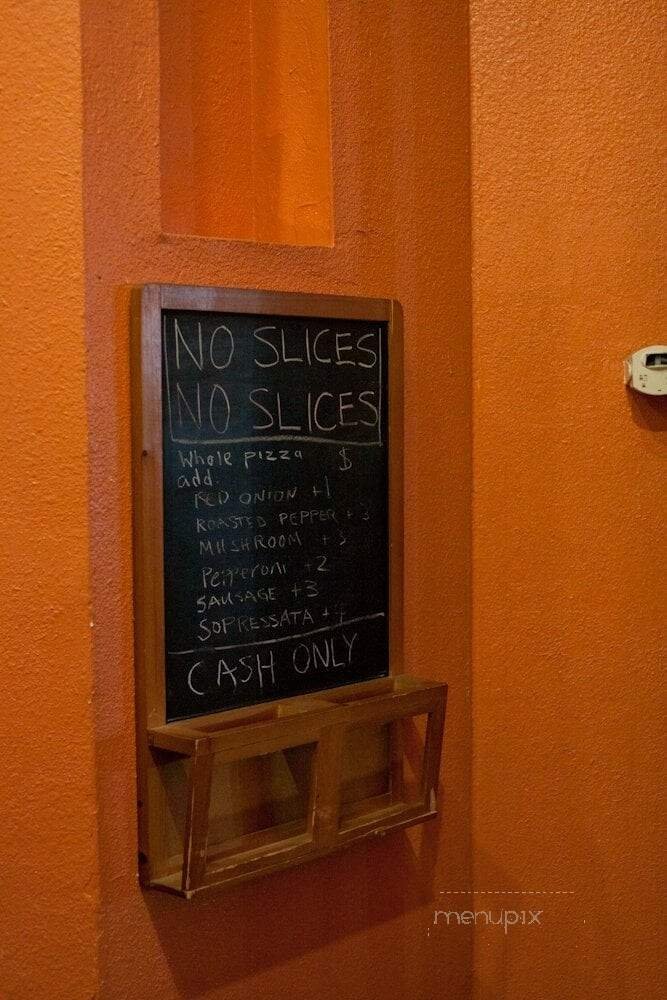 NO SLICES
NO SLICES
Whole pizza $
add.
RED ONION +1
ROASTED PEPPER + 3
MUSHROOM + 3
Pepperoni +2
SAUSAGE +3
SOPRESSATA +
CASH ONLY
menupix